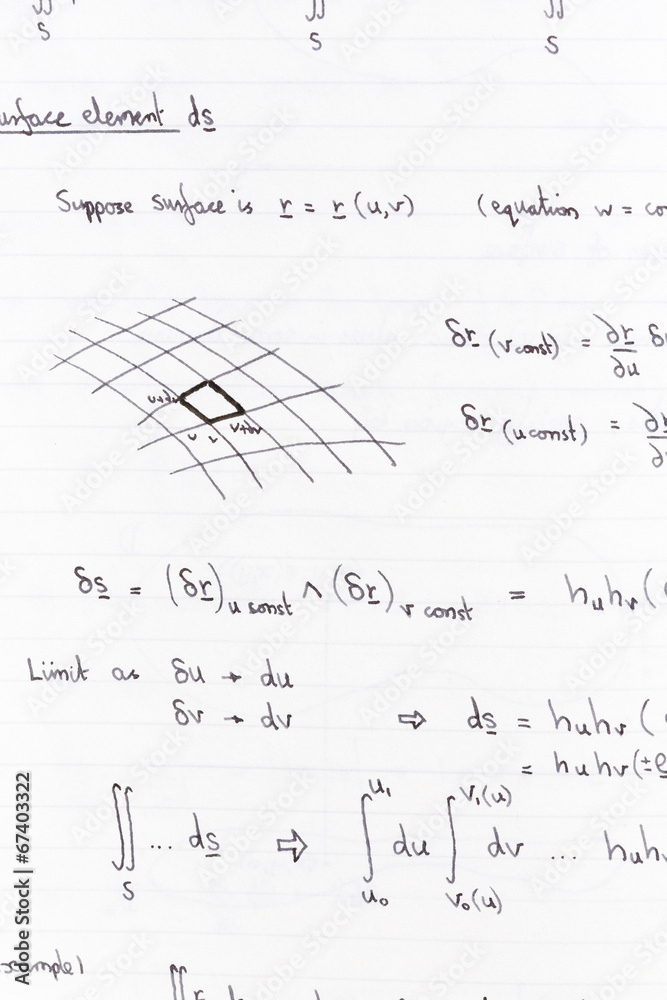 ∬ ∬ ∬
S S S
urface element ds
Suppose surface is r = r (u,v) (equation w = co
δr (v const) = ∂r/∂u δ
δr (u const) = ∂r/∂
u+du
u v v+dv
δs = (δr) u const ∧ (δr) v const = hu hv (
Limit as δu → du
δv → dv ⇒ ds = hu hv (
= hu hv (±e
∬ S ... ds ⇒ ∫ u₀ u₁ du ∫ v₀(u) v₁(u) dv ... hu h
xample 1
Adobe Stock | #67403322